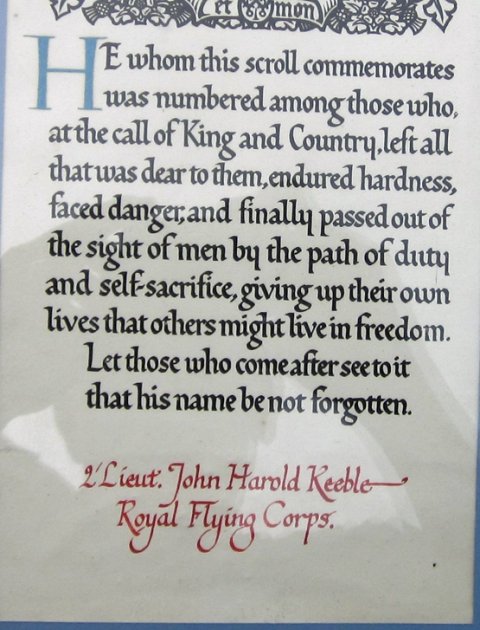 et mon
HE whom this scroll commemorates
was numbered among those who,
at the call of King and Country, left all
that was dear to them, endured hardness,
faced danger, and finally passed out of
the sight of men by the path of duty
and self-sacrifice, giving up their own
lives that others might live in freedom.
Let those who come after see to it
that his name be not forgotten.
2/Lieut. John Harold Keeble
Royal Flying Corps.